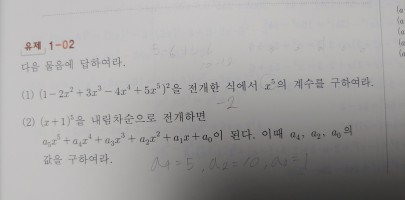 유제 1-02
다음 물음에 답하여라.
(1) (1-2x²+3x³-4x⁴+5x⁵)²을 전개한 식에서 x⁵의 계수를 구하여라.
-2
(2) (x+1)⁵을 내림차순으로 전개하면
a₅x⁵+a₄x⁴+a₃x³+a₂x²+a₁x+a₀이 된다. 이때 a₄, a₂, a₀의
값을 구하여라.
a₄=5, a₂=10, a₀=1